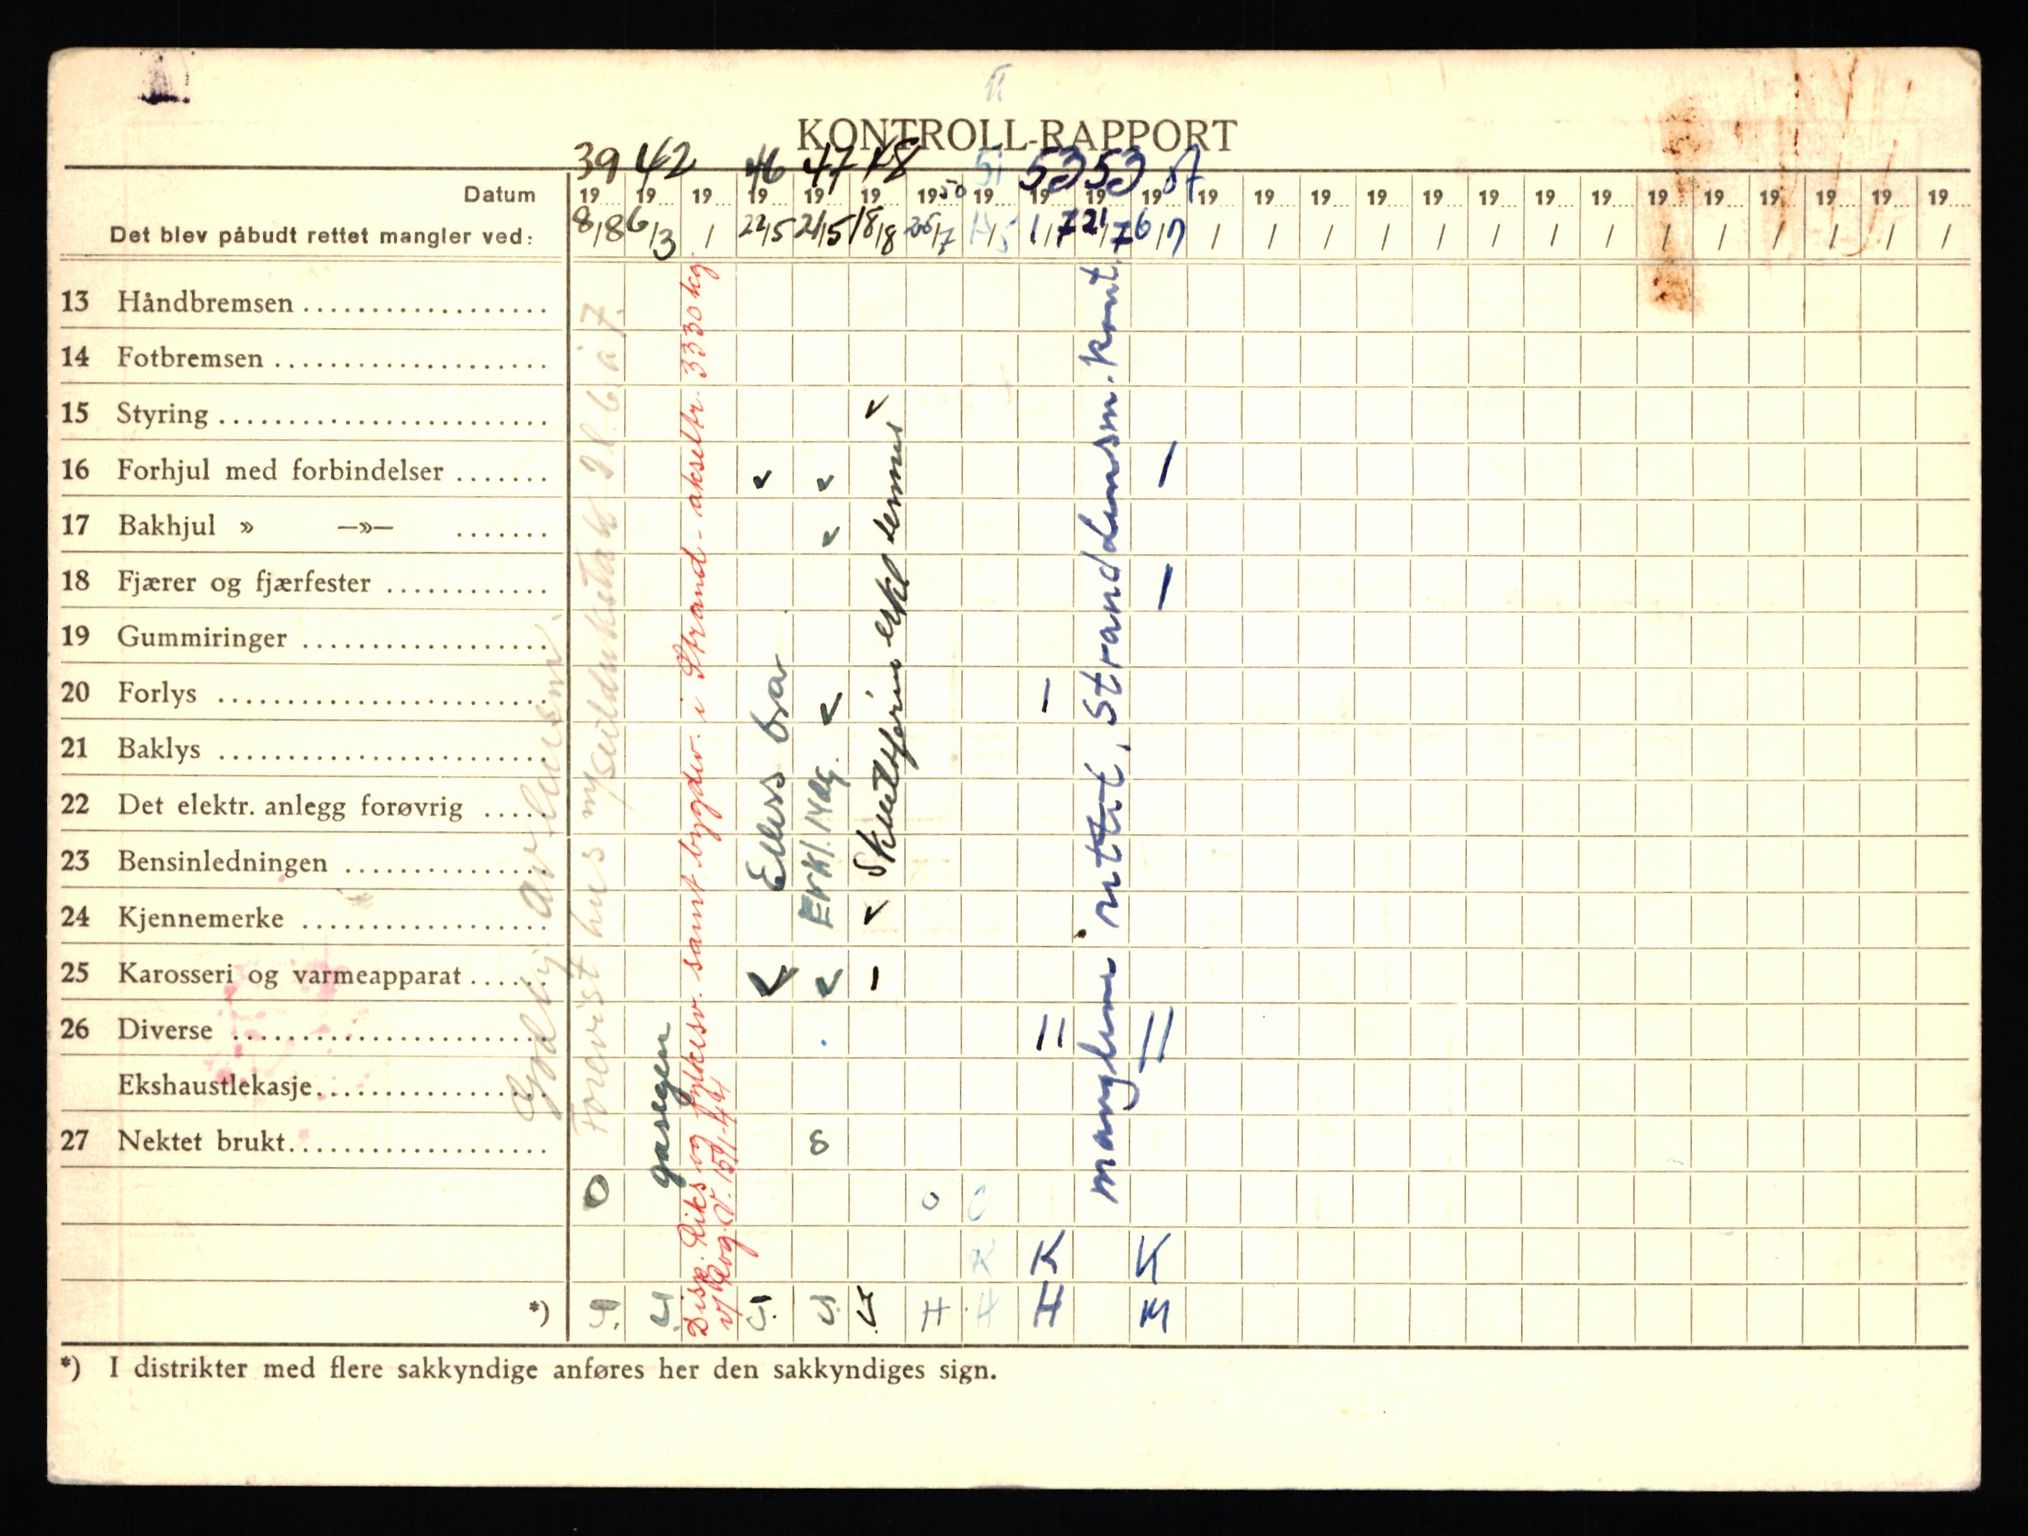 KONTROLL-RAPPORT
39 42 46 47 48 50 51 53 53
Datum 19 19 19 19 19 19 19 19 19 19 19 19 19 19 19 19 19 19 19 19 19 19 19 19 19
Det blev påbudt rettet mangler ved: 8/8 6/3 / 22/5 21/5 18/8 26/7 /5 1/7 21/7 6/7 / / / / / / / / / / / / / /
13 Håndbremsen
14 Fotbremsen
15 Styring
16 Forhjul med forbindelser
17 Bakhjul » —»—
18 Fjærer og fjærfester
19 Gummiringer
20 Forlys
21 Baklys
22 Det elektr. anlegg forøvrig
23 Bensinledningen
24 Kjennemerke
25 Karosseri og varmeapparat
26 Diverse
Ekshaustlekasje
27 Nektet brukt
Forevist hus
gasegen
Disp. Riks og fylkesv. samt bygdev. i Strand - akseltr. 3330 kg.
Ellers bra
Erkl.
manglene rettet, Strand lensm. kont.
O O O
K K K
*) H H H M
*) I distrikter med flere sakkyndige anføres her den sakkyndiges sign.